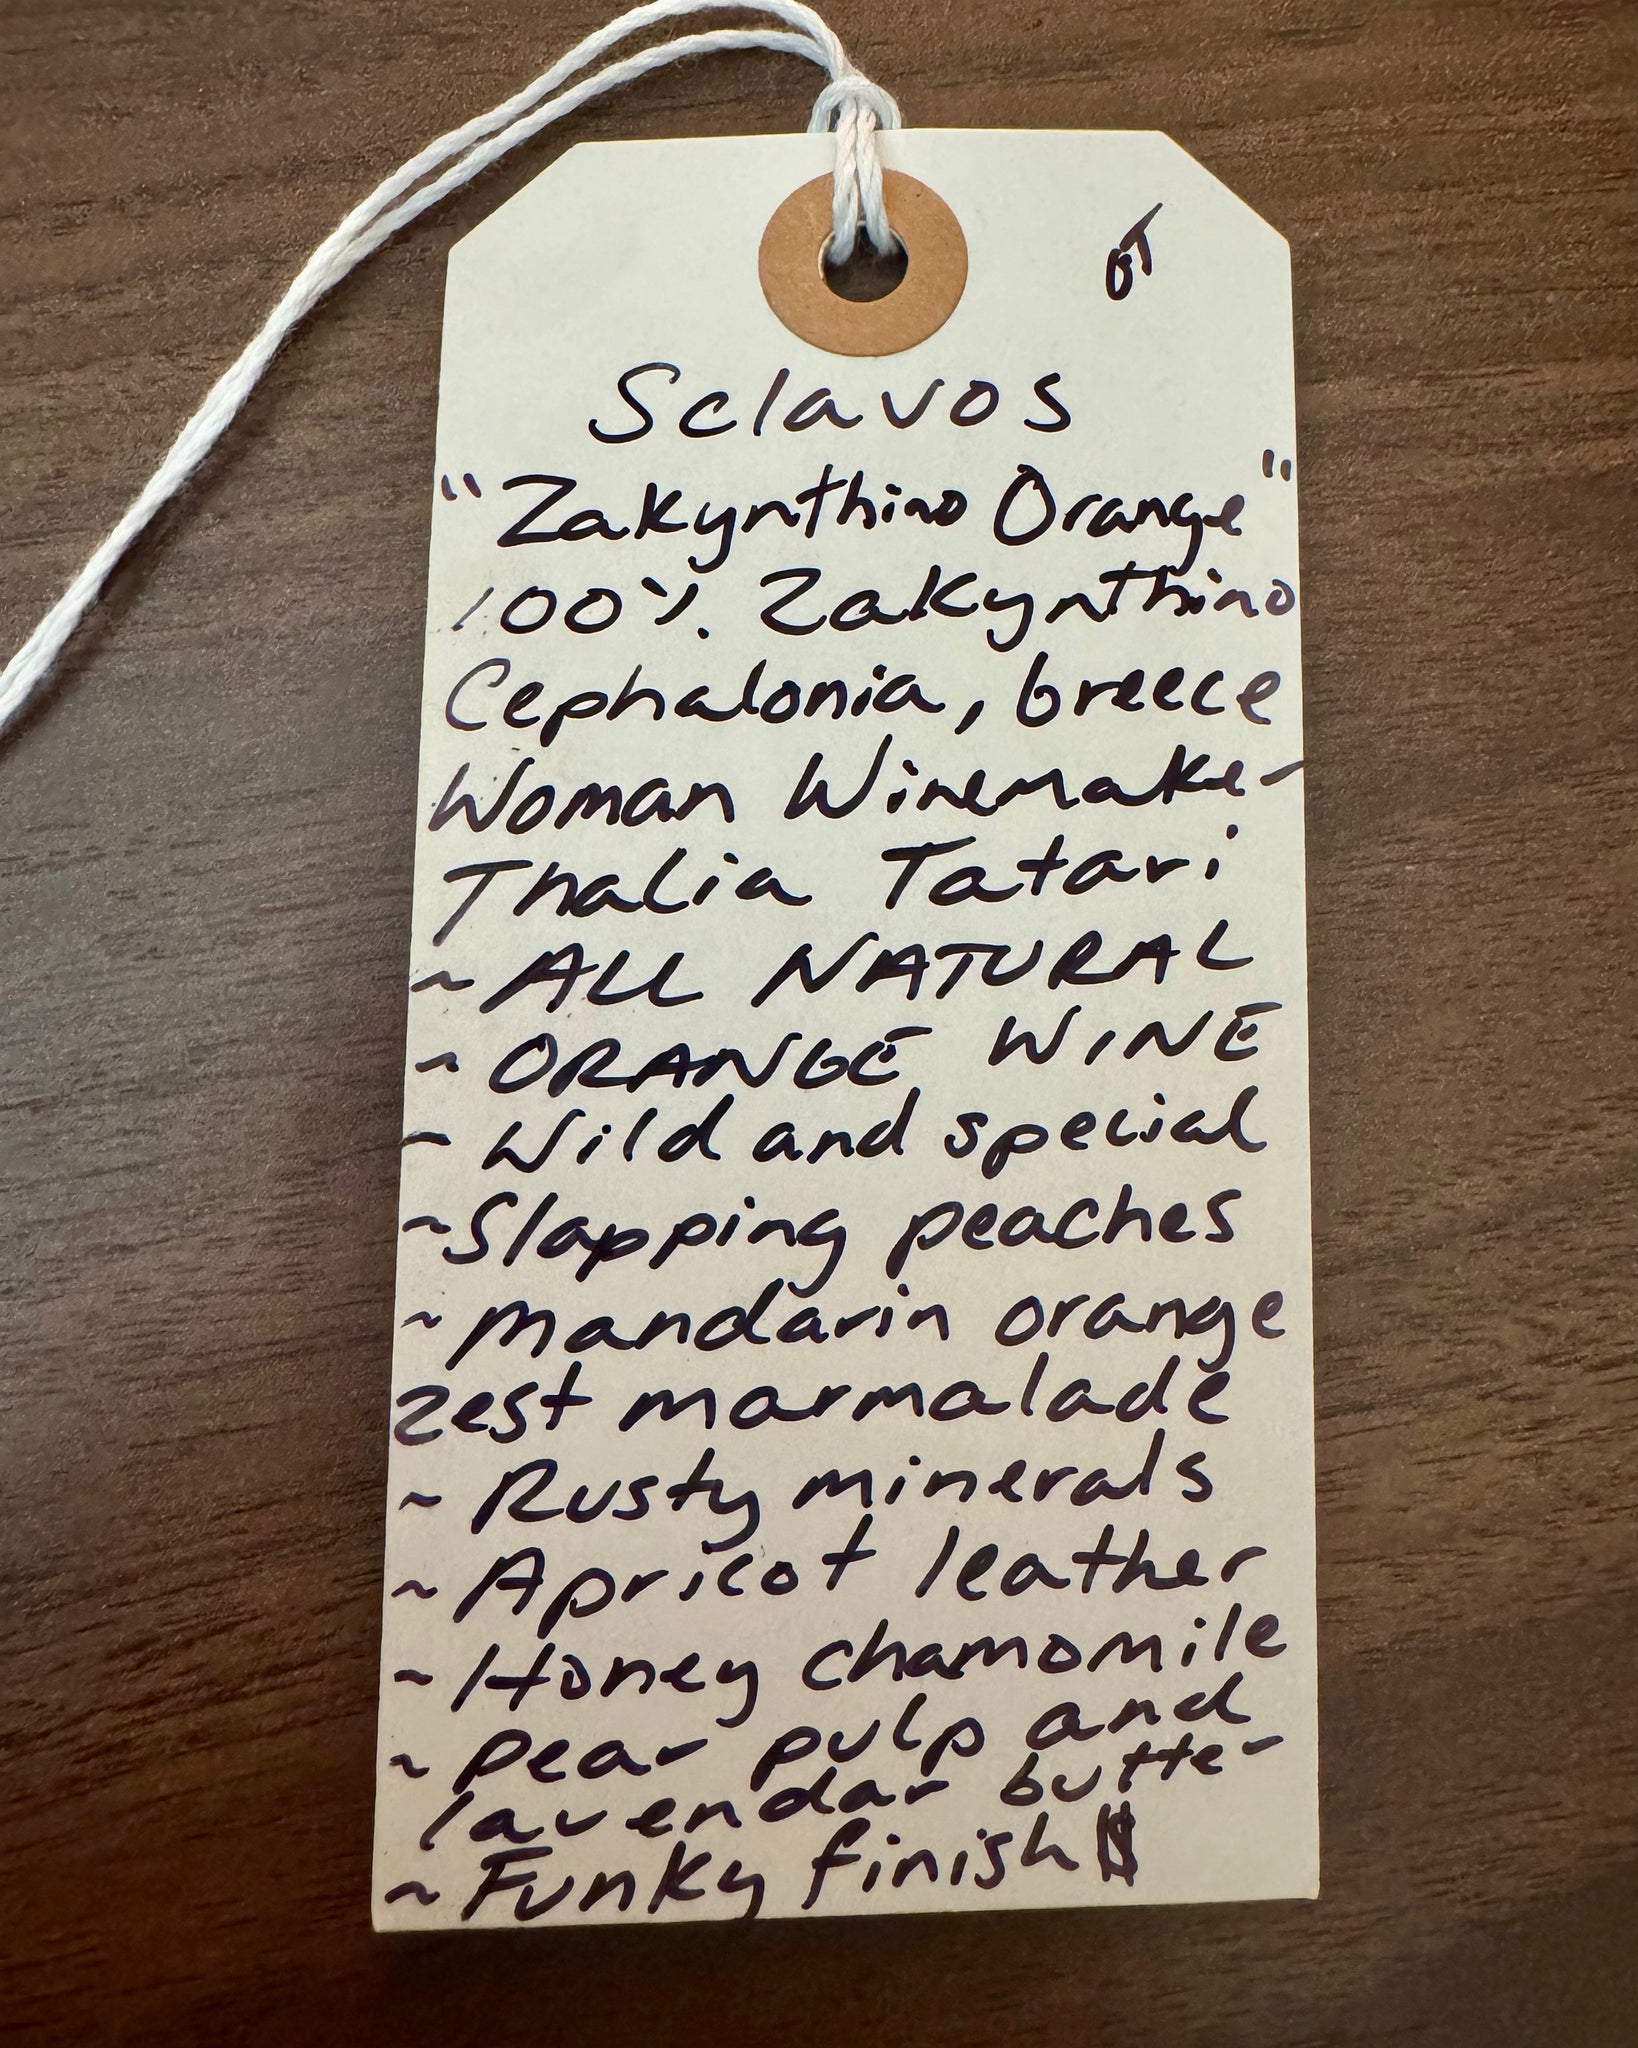 Sclavos
"Zakynthino Orange"
100% Zakynthino
Cephalonia, Greece
Woman Winemaker
Thalia Tatari
~ ALL NATURAL
~ ORANGE WINE
~ Wild and special
~ Slapping peaches
~ Mandarin orange
zest marmalade
~ Rusty minerals
~ Apricot leather
~ Honey chamomile
~ Pear pulp and
lavendar butter
~ Funky finish